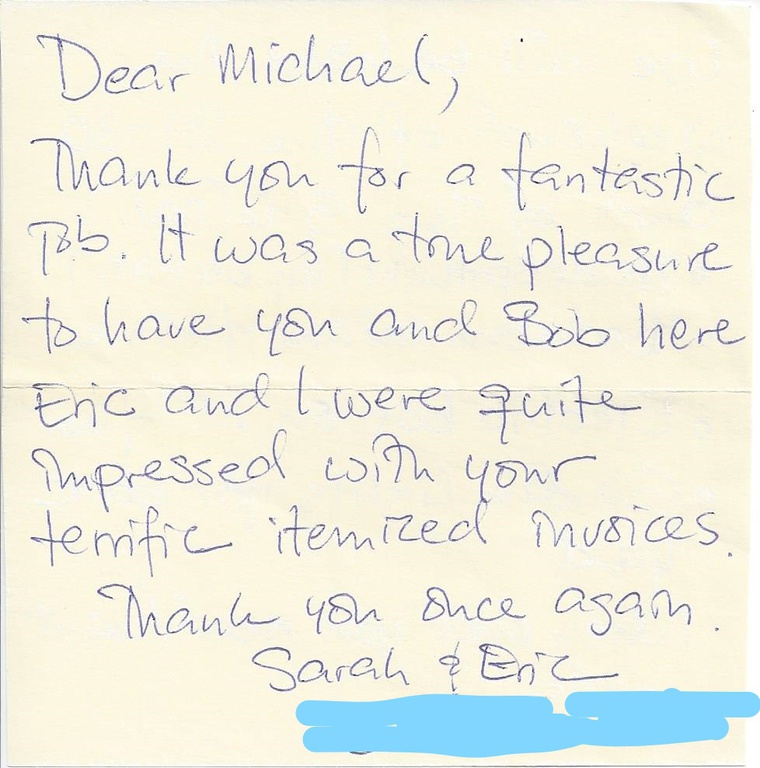 Dear Michael,
Thank you for a fantastic
job. It was a true pleasure
to have you and Bob here
Eric and I were quite
impressed with your
terrific itemized invoices.
Thank you once again.
Sarah & Eric